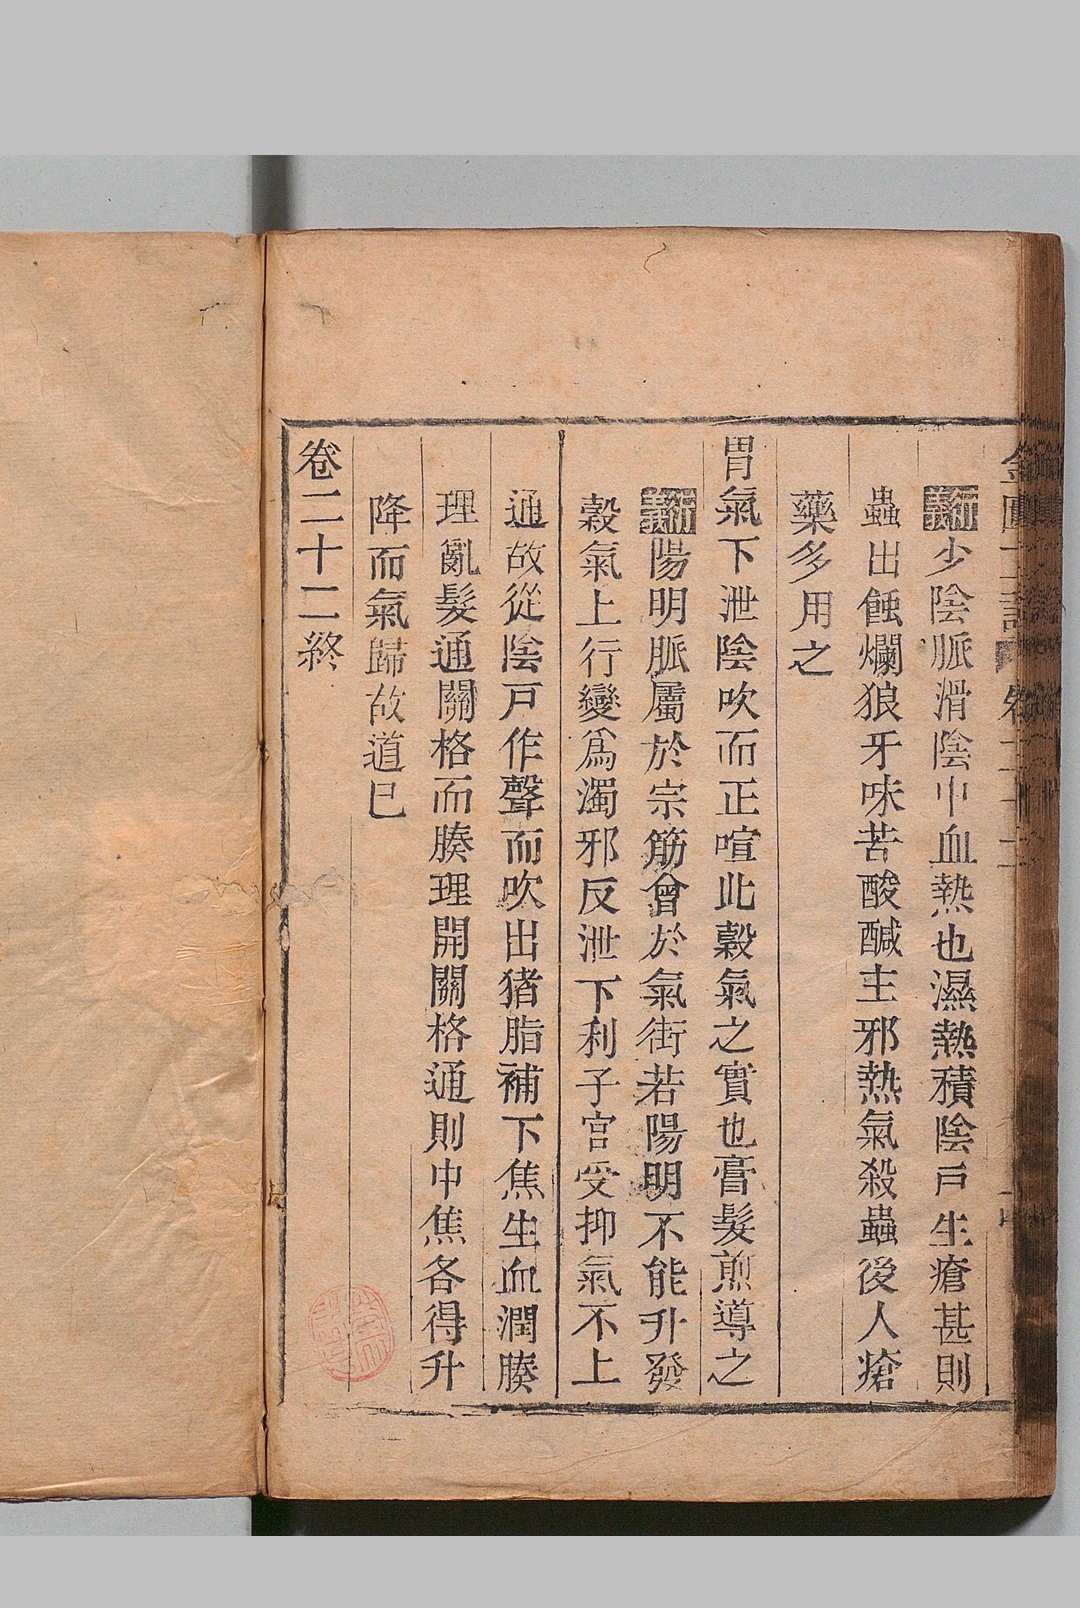 衍義少陰脈滑陰中血熱也濕熱積陰戶生瘡甚則
蟲出蝕爛狼牙味苦酸鹹主邪熱氣殺蟲後人瘡
藥多用之
胃氣下泄陰吹而正喧此穀氣之實也膏髮煎導之
衍義陽明脈屬於宗筋會於氣街若陽明不能升發
穀氣上行變爲濁邪反泄下利子宮受抑氣不上
通故從陰戸作聲而吹出猪脂補下焦生血潤腠
理亂髮通關格而腠理開關格通則中焦各得升
降而氣歸故道已
卷二十二終